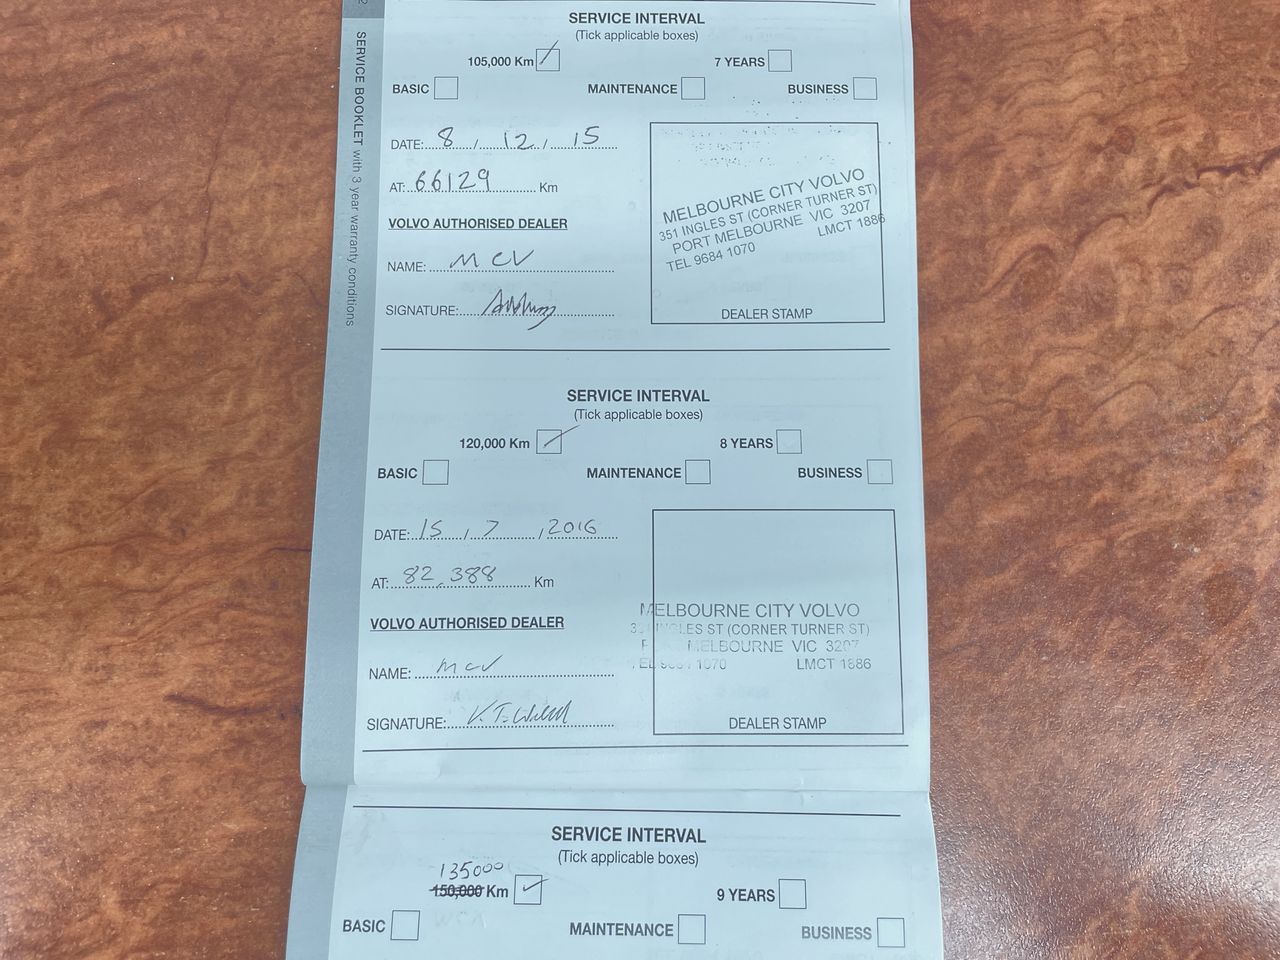 SERVICE BOOKLET with 3 year warranty conditions
SERVICE INTERVAL
(Tick applicable boxes)
105,000 Km
7 YEARS
BASIC
MAINTENANCE
BUSINESS
DATE: 8 / 12 / 15
AT: 66129 Km
VOLVO AUTHORISED DEALER
NAME: MCV
SIGNATURE:
MELBOURNE CITY VOLVO
351 INGLES ST (CORNER TURNER ST)
PORT MELBOURNE VIC 3207
TEL 9684 1070 LMCT 1886
DEALER STAMP
SERVICE INTERVAL
(Tick applicable boxes)
120,000 Km
8 YEARS
BASIC
MAINTENANCE
BUSINESS
DATE: 15 / 7 / 2016
AT: 82,388 Km
VOLVO AUTHORISED DEALER
NAME: MCV
SIGNATURE:
MELBOURNE CITY VOLVO
INGLES ST (CORNER TURNER ST)
MELBOURNE VIC 3207
1070 LMCT 1886
DEALER STAMP
SERVICE INTERVAL
(Tick applicable boxes)
135000
150,000 Km
9 YEARS
BASIC
MAINTENANCE
BUSINESS